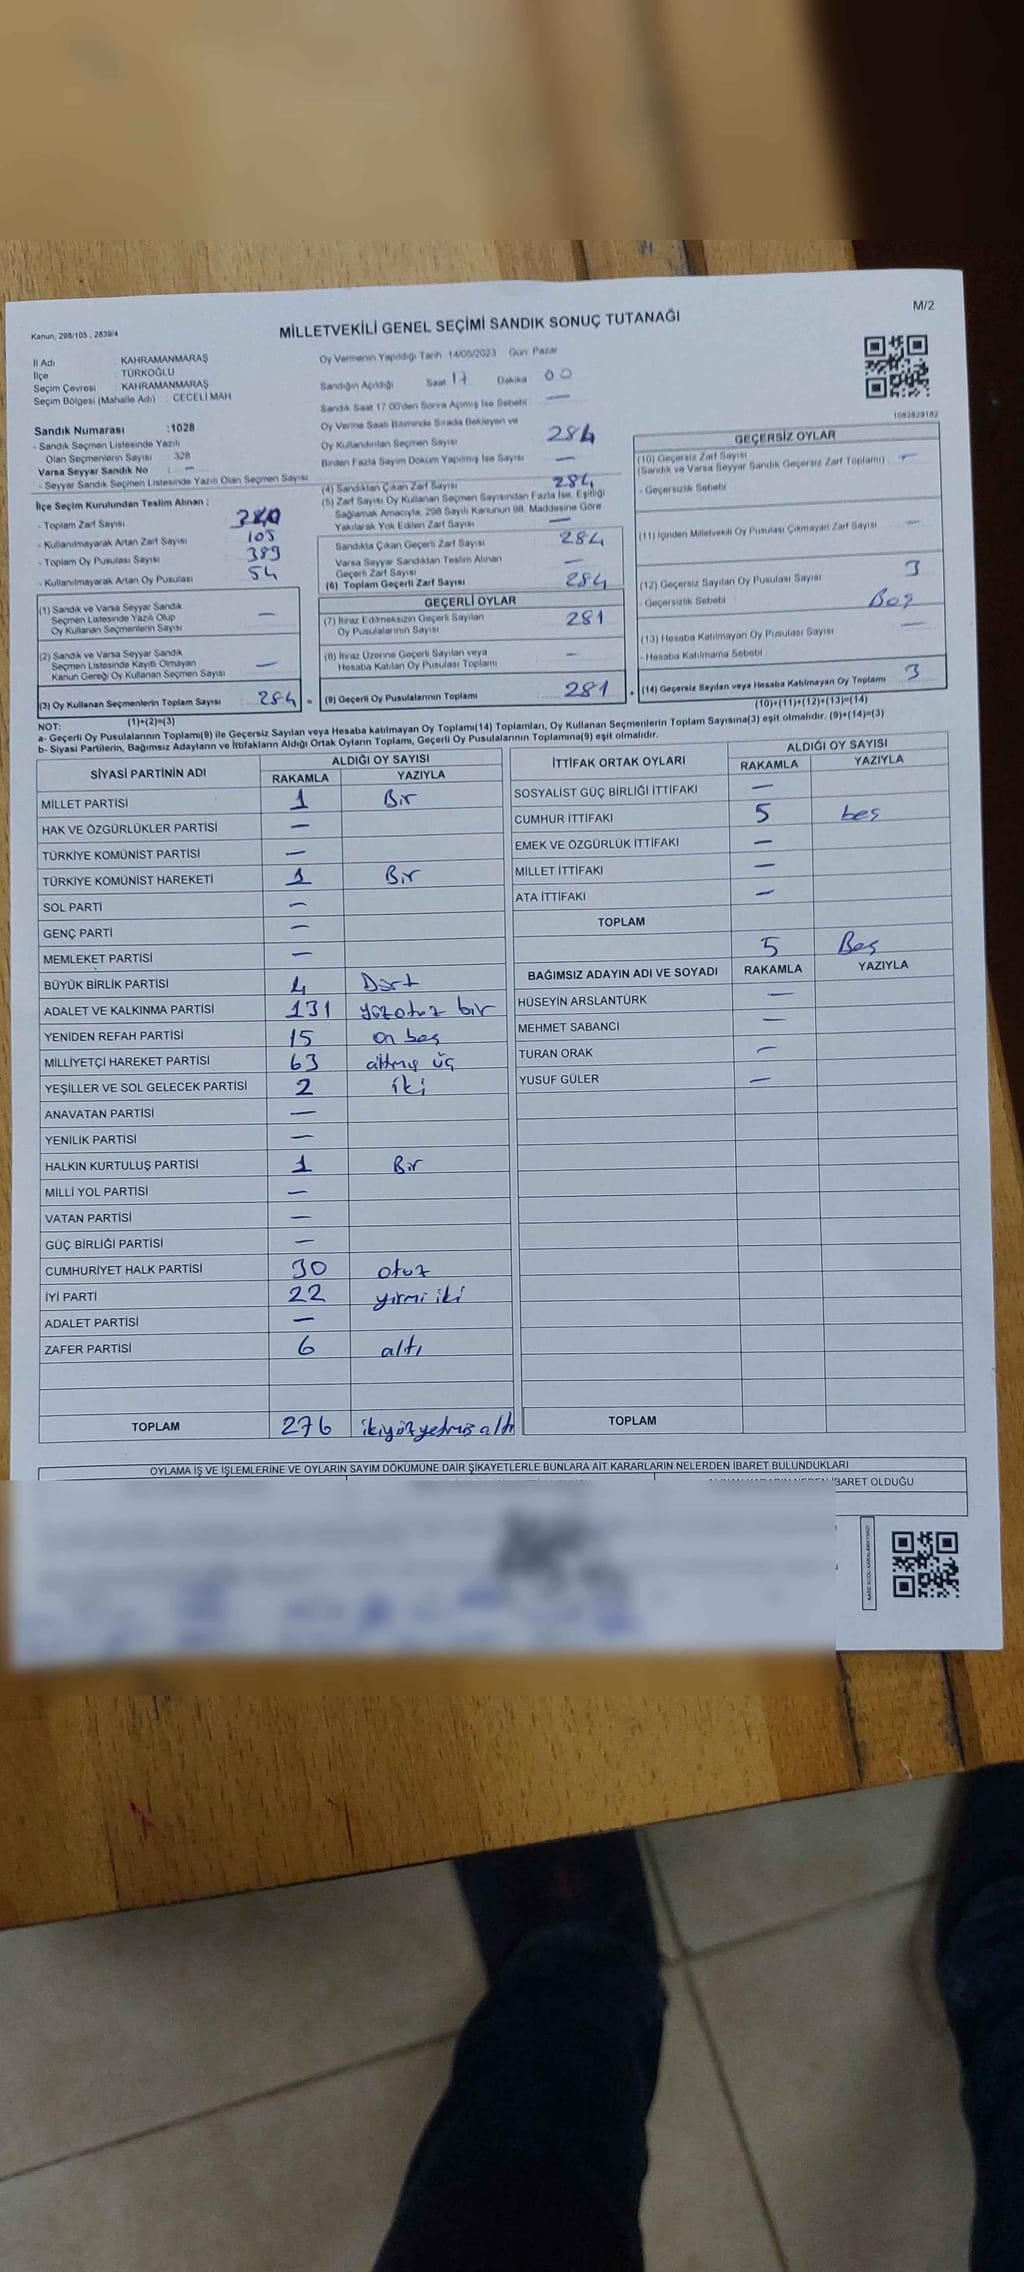 M/2
Kanun, 298/105 , 2839/4
MİLLETVEKİLİ GENEL SEÇİMİ SANDIK SONUÇ TUTANAĞI
İl Adı KAHRAMANMARAŞ
İlçe TÜRKOĞLU
Seçim Çevresi KAHRAMANMARAŞ
Seçim Bölgesi (Mahalle Adı) : CECELİ MAH
Sandık Numarası :1028
- Sandık Seçmen Listesinde Yazılı
Olan Seçmenlerin Sayısı : 328
Varsa Seyyar Sandık No : —
- Seyyar Sandık Seçmen Listesinde Yazılı Olan Seçmen Sayısı
İlçe Seçim Kurulundan Teslim Alınan :
- Toplam Zarf Sayısı
- Kullanılmayarak Artan Zarf Sayısı 105
- Toplam Oy Pusulası Sayısı 389
- Kullanılmayarak Artan Oy Pusulası 54
(1) Sandık ve Varsa Seyyar Sandık
Seçmen Listesinde Yazılı Olup
Oy Kullanan Seçmenlerin Sayısı —
(2) Sandık ve Varsa Seyyar Sandık
Seçmen Listesinde Kayıtlı Olmayan
Kanun Gereği Oy Kullanan Seçmen Sayısı —
(3) Oy Kullanan Seçmenlerin Toplam Sayısı : 284 =
(1)+(2)=(3)
Oy Vermenin Yapıldığı Tarih 14/05/2023 Gün: Pazar
Sandığın Açıldığı Saat 17 Dakika 00
Sandık Saat 17:00'den Sonra Açılmış İse Sebebi : —
Oy Verme Saati Bitiminde Sırada Bekleyen ve
Oy Kullandırılan Seçmen Sayısı 284
Birden Fazla Sayım Döküm Yapılmış İse Sayısı —
(4) Sandıktan Çıkan Zarf Sayısı 284
(5) Zarf Sayısı Oy Kullanan Seçmen Sayısından Fazla İse, Eşitliği
Sağlamak Amacıyla, 298 Sayılı Kanunun 98. Maddesine Göre
Yakılarak Yok Edilen Zarf Sayısı —
Sandıkta Çıkan Geçerli Zarf Sayısı 284
Varsa Seyyar Sandıktan Teslim Alınan
Geçerli Zarf Sayısı —
(6) Toplam Geçerli Zarf Sayısı 284
GEÇERLİ OYLAR
(7) İtiraz Edilmeksizin Geçerli Sayılan
Oy Pusulalarının Sayısı 281
(8) İtiraz Üzerine Geçerli Sayılan veya
Hesaba Katılan Oy Pusulası Toplamı —
(9) Geçerli Oy Pusulalarının Toplamı : 281 +
1083829182
GEÇERSİZ OYLAR
(10) Geçersiz Zarf Sayısı
(Sandık ve Varsa Seyyar Sandık Geçersiz Zarf Toplamı) —
- Geçersizlik Sebebi :
(11) İçinden Milletvekili Oy Pusulası Çıkmayan Zarf Sayısı —
(12) Geçersiz Sayılan Oy Pusulası Sayısı 3
- Geçersizlik Sebebi : Boş
(13) Hesaba Katılmayan Oy Pusulası Sayısı —
- Hesaba Katılmama Sebebi :
(14) Geçersiz Sayılan veya Hesaba Katılmayan Oy Toplamı 3
(10)+(11)+(12)+(13)=(14)
NOT:
a- Geçerli Oy Pusulalarının Toplamı(9) ile Geçersiz Sayılan veya Hesaba katılmayan Oy Toplamı(14) Toplamları, Oy Kullanan Seçmenlerin Toplam Sayısına(3) eşit olmalıdır. (9)+(14)=(3)
b- Siyasi Partilerin, Bağımsız Adayların ve İttifakların Aldığı Ortak Oyların Toplamı, Geçerli Oy Pusulalarının Toplamına(9) eşit olmalıdır.
SİYASİ PARTİNİN ADI ALDIĞI OY SAYISI
RAKAMLA YAZIYLA
MİLLET PARTİSİ 1 Bir
HAK VE ÖZGÜRLÜKLER PARTİSİ —
TÜRKİYE KOMÜNİST PARTİSİ —
TÜRKİYE KOMÜNİST HAREKETİ 1 Bir
SOL PARTİ —
GENÇ PARTİ —
MEMLEKET PARTİSİ —
BÜYÜK BİRLİK PARTİSİ 4 Dört
ADALET VE KALKINMA PARTİSİ 131 yüzotuz bir
YENİDEN REFAH PARTİSİ 15 on beş
MİLLİYETÇİ HAREKET PARTİSİ 63 altmış üç
YEŞİLLER VE SOL GELECEK PARTİSİ 2 iki
ANAVATAN PARTİSİ —
YENİLİK PARTİSİ —
HALKIN KURTULUŞ PARTİSİ 1 Bir
MİLLİ YOL PARTİSİ —
VATAN PARTİSİ —
GÜÇ BİRLİĞİ PARTİSİ —
CUMHURİYET HALK PARTİSİ 30 otuz
İYİ PARTİ 22 yirmi iki
ADALET PARTİSİ —
ZAFER PARTİSİ 6 altı
TOPLAM 276 ikiyüzyetmiş altı
İTTİFAK ORTAK OYLARI ALDIĞI OY SAYISI
RAKAMLA YAZIYLA
SOSYALİST GÜÇ BİRLİĞİ İTTİFAKI —
CUMHUR İTTİFAKI 5 beş
EMEK VE ÖZGÜRLÜK İTTİFAKI —
MİLLET İTTİFAKI —
ATA İTTİFAKI —
TOPLAM
5 Beş
BAĞIMSIZ ADAYIN ADI VE SOYADI RAKAMLA YAZIYLA
HÜSEYİN ARSLANTÜRK —
MEHMET SABANCI —
TURAN ORAK —
YUSUF GÜLER —
TOPLAM
OYLAMA İŞ VE İŞLEMLERİNE VE OYLARIN SAYIM DÖKÜMÜNE DAİR ŞİKAYETLERLE BUNLARA AİT KARARLARIN NELERDEN İBARET BULUNDUKLARI
İBARET OLDUĞU